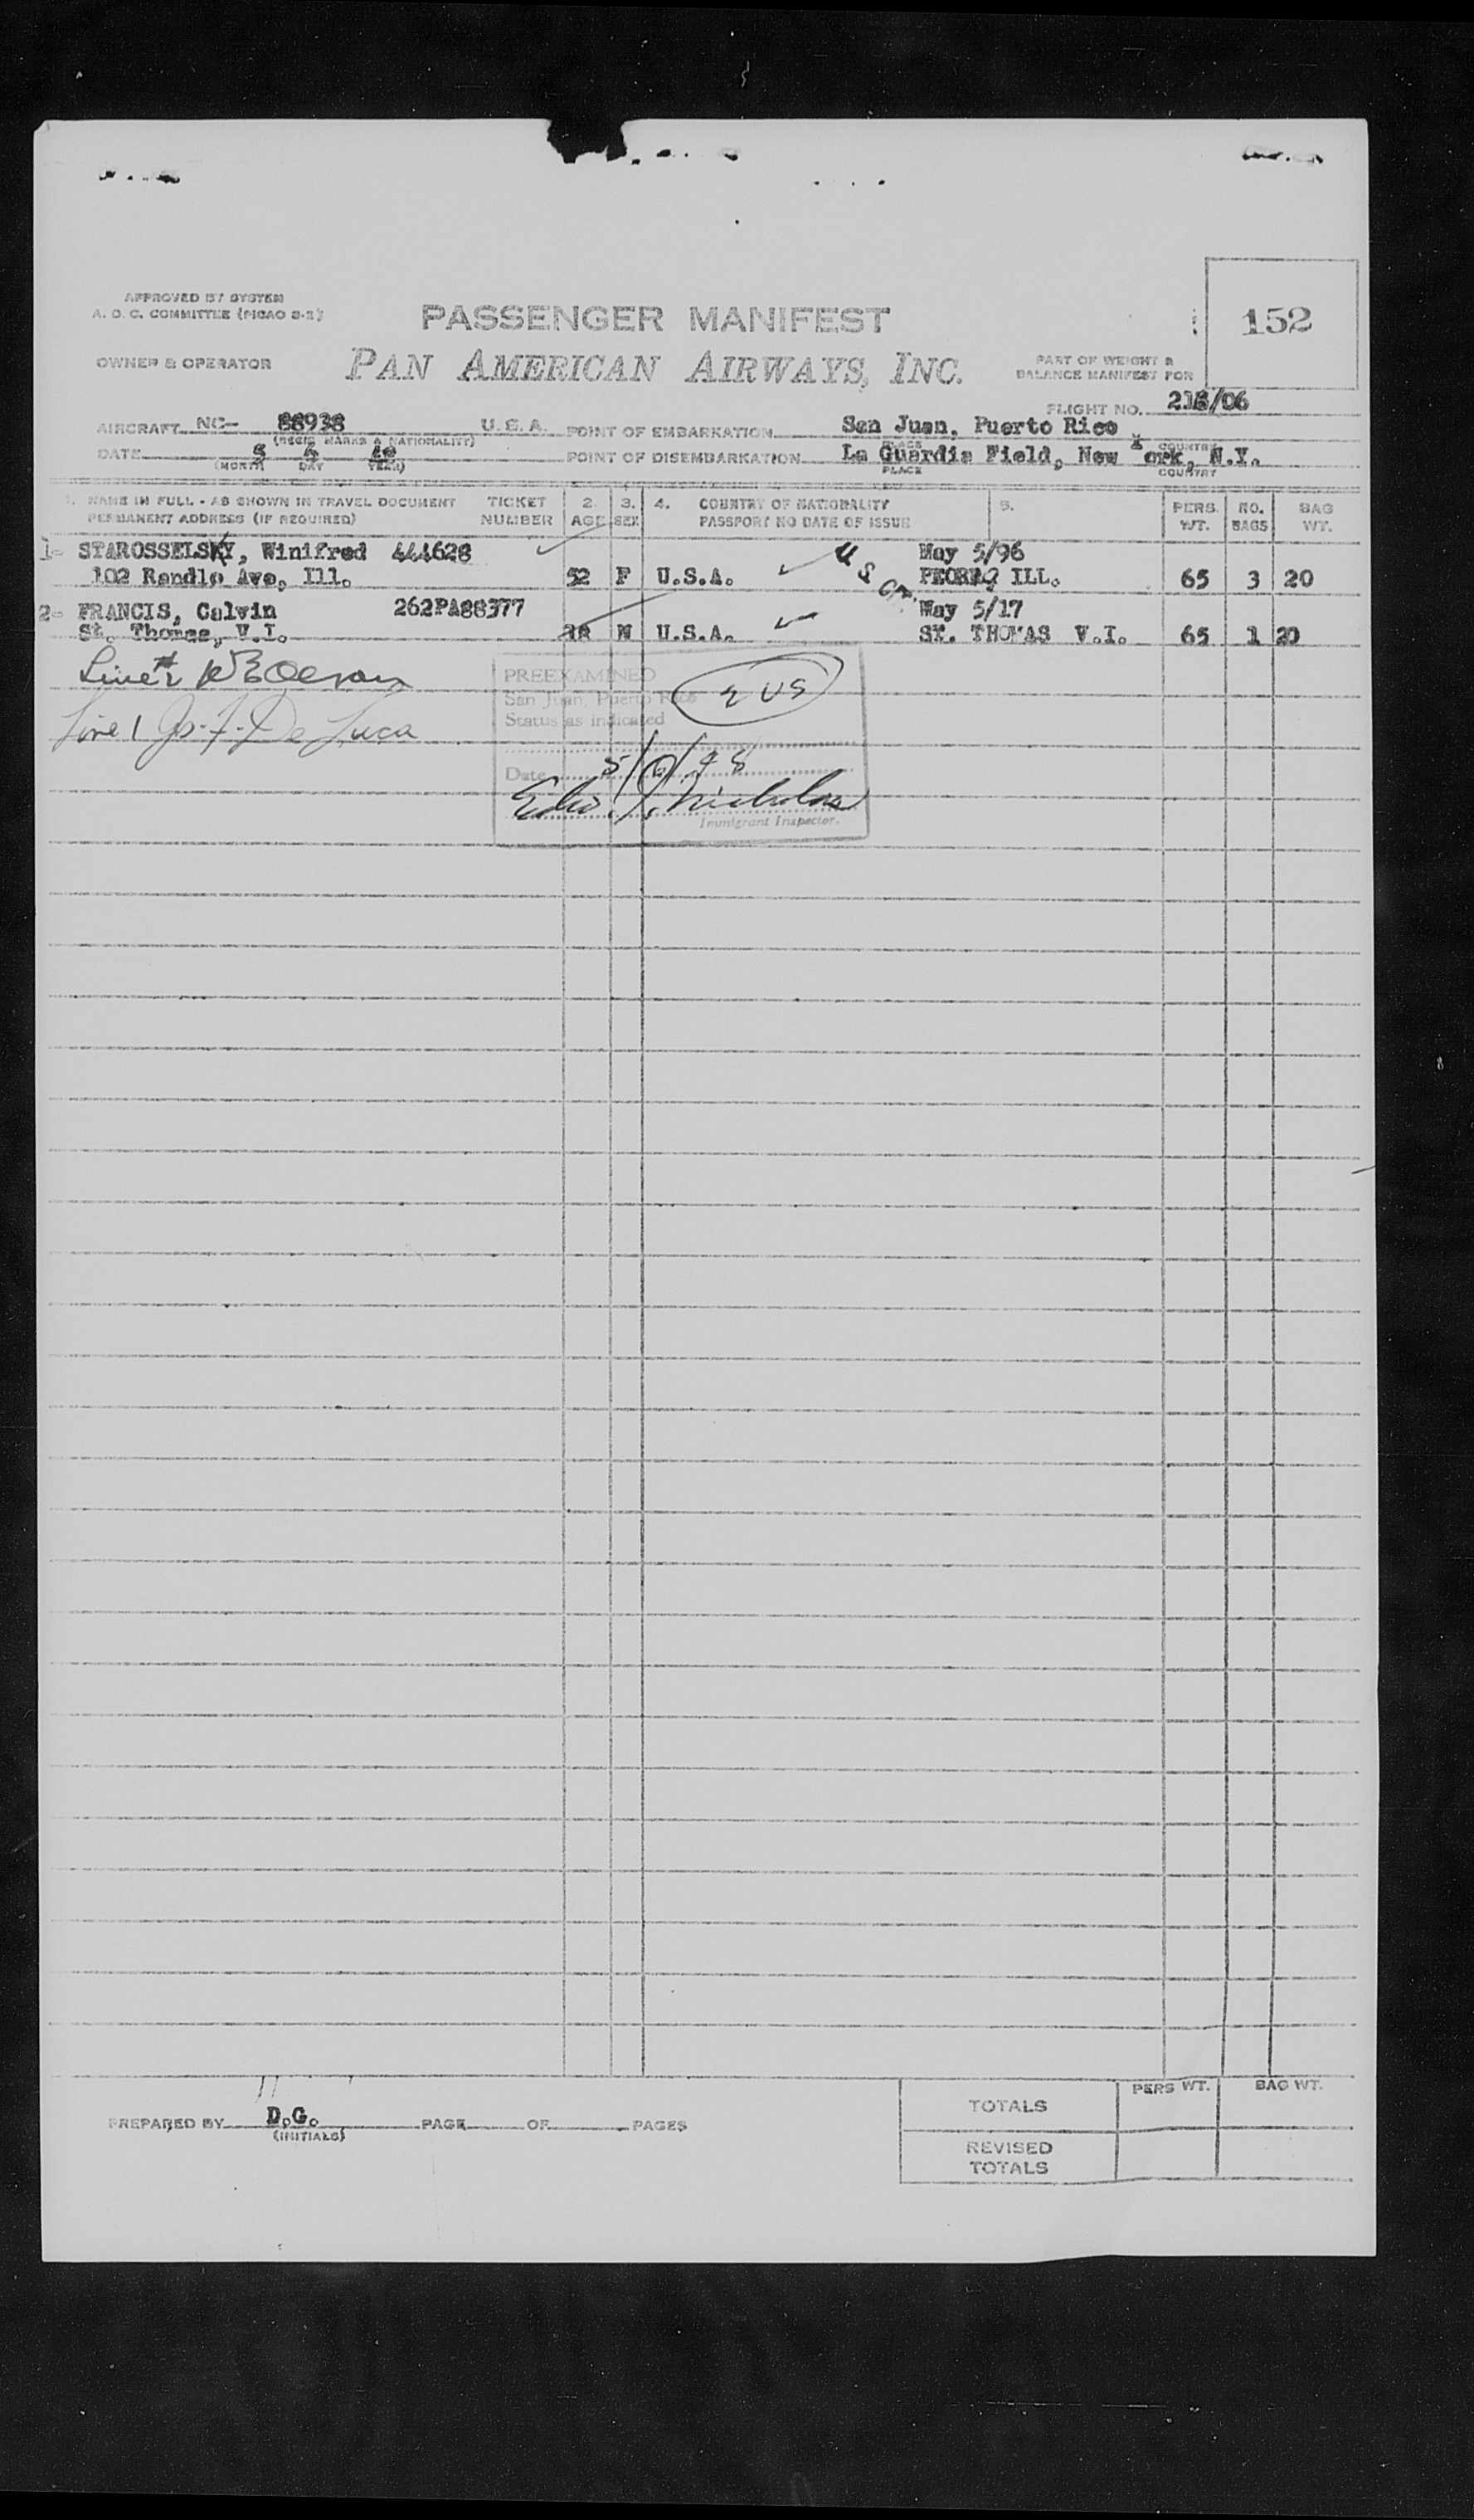 APPROVED BY SYSTEM
A. O. C. COMMITTEE (PICAO S-2)
PASSENGER MANIFEST
152
OWNER & OPERATOR
PAN AMERICAN AIRWAYS, INC.
PART OF WEIGHT &
BALANCE MANIFEST FOR
FLIGHT NO. 218/06
AIRCRAFT NC- 88938 U. S. A. POINT OF EMBARKATION San Juan, Puerto Rico
(REGIS. MARKS & NATIONALITY) PLACE COUNTRY
DATE 5 4 48 POINT OF DISEMBARKATION La Guardia Field, New York, N.Y.
(MONTH DAY YEAR) PLACE COUNTRY
1. NAME IN FULL - AS SHOWN IN TRAVEL DOCUMENT TICKET 2. 3. 4. COUNTRY OF NATIONALITY 5. PERS. NO. BAG
PERMANENT ADDRESS (IF REQUIRED) NUMBER AGE SEX PASSPORT NO DATE OF ISSUE WT. BAGS WT.
1- STAROSSELSKY, Winifred 444628 May 5/96
102 Randle Ave, Ill. 52 F U.S.A. U S Cit. PEORIA, ILL. 65 3 20
2- FRANCIS, Calvin 262PA88377 May 5/17
St. Thomas, V.I. M U.S.A. ST. THOMAS V.I. 65 1 20
Line 2
Line 1 Jo. F. De Luca
PREEXAMINED
San Juan, Puerto Rico
2 US
Status as indicated
Date 5/ /48
Nicholas
Immigrant Inspector.
PREPARED BY D.G. PAGE OF PAGES
(INITIALS)
PERS WT. BAG WT.
TOTALS
REVISED
TOTALS